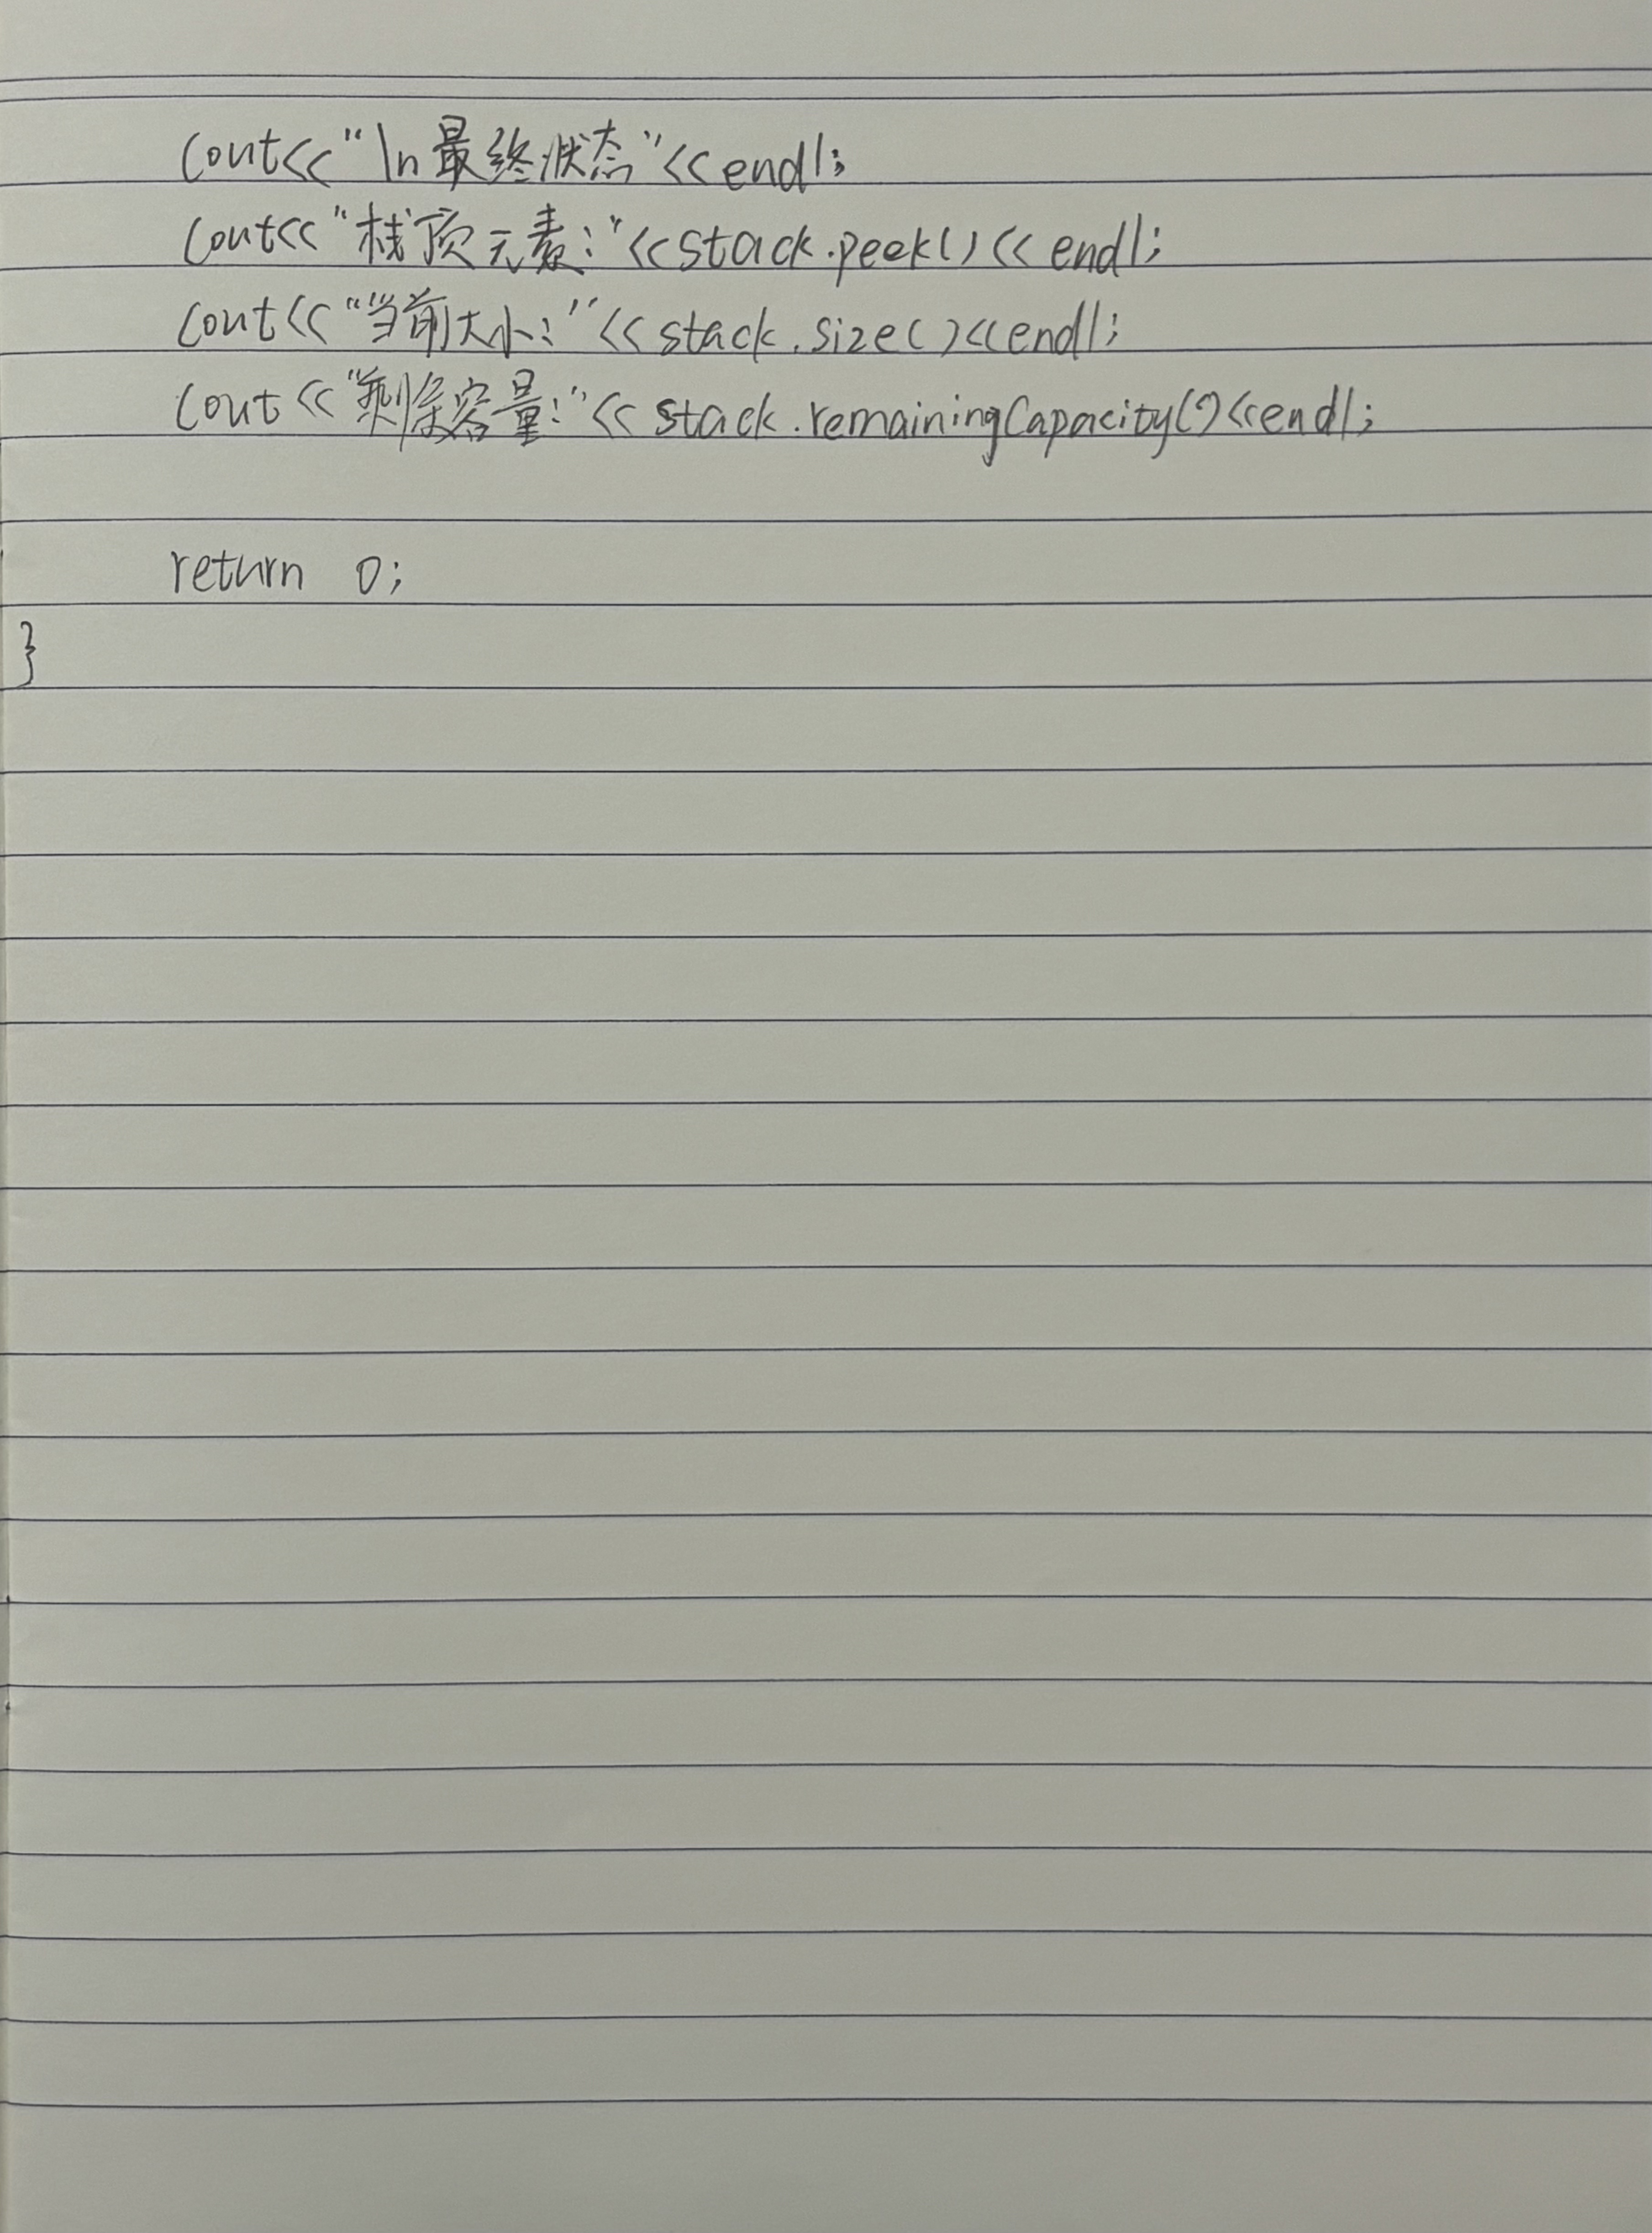 cout<<"\n最终状态"<<endl;
cout<<"栈顶元素:"<<stack.peek()<<endl;
cout<<"当前大小:"<<stack.size()<<endl;
cout<<"剩余容量:"<<stack.remainingCapacity()<<endl;
return 0;
}